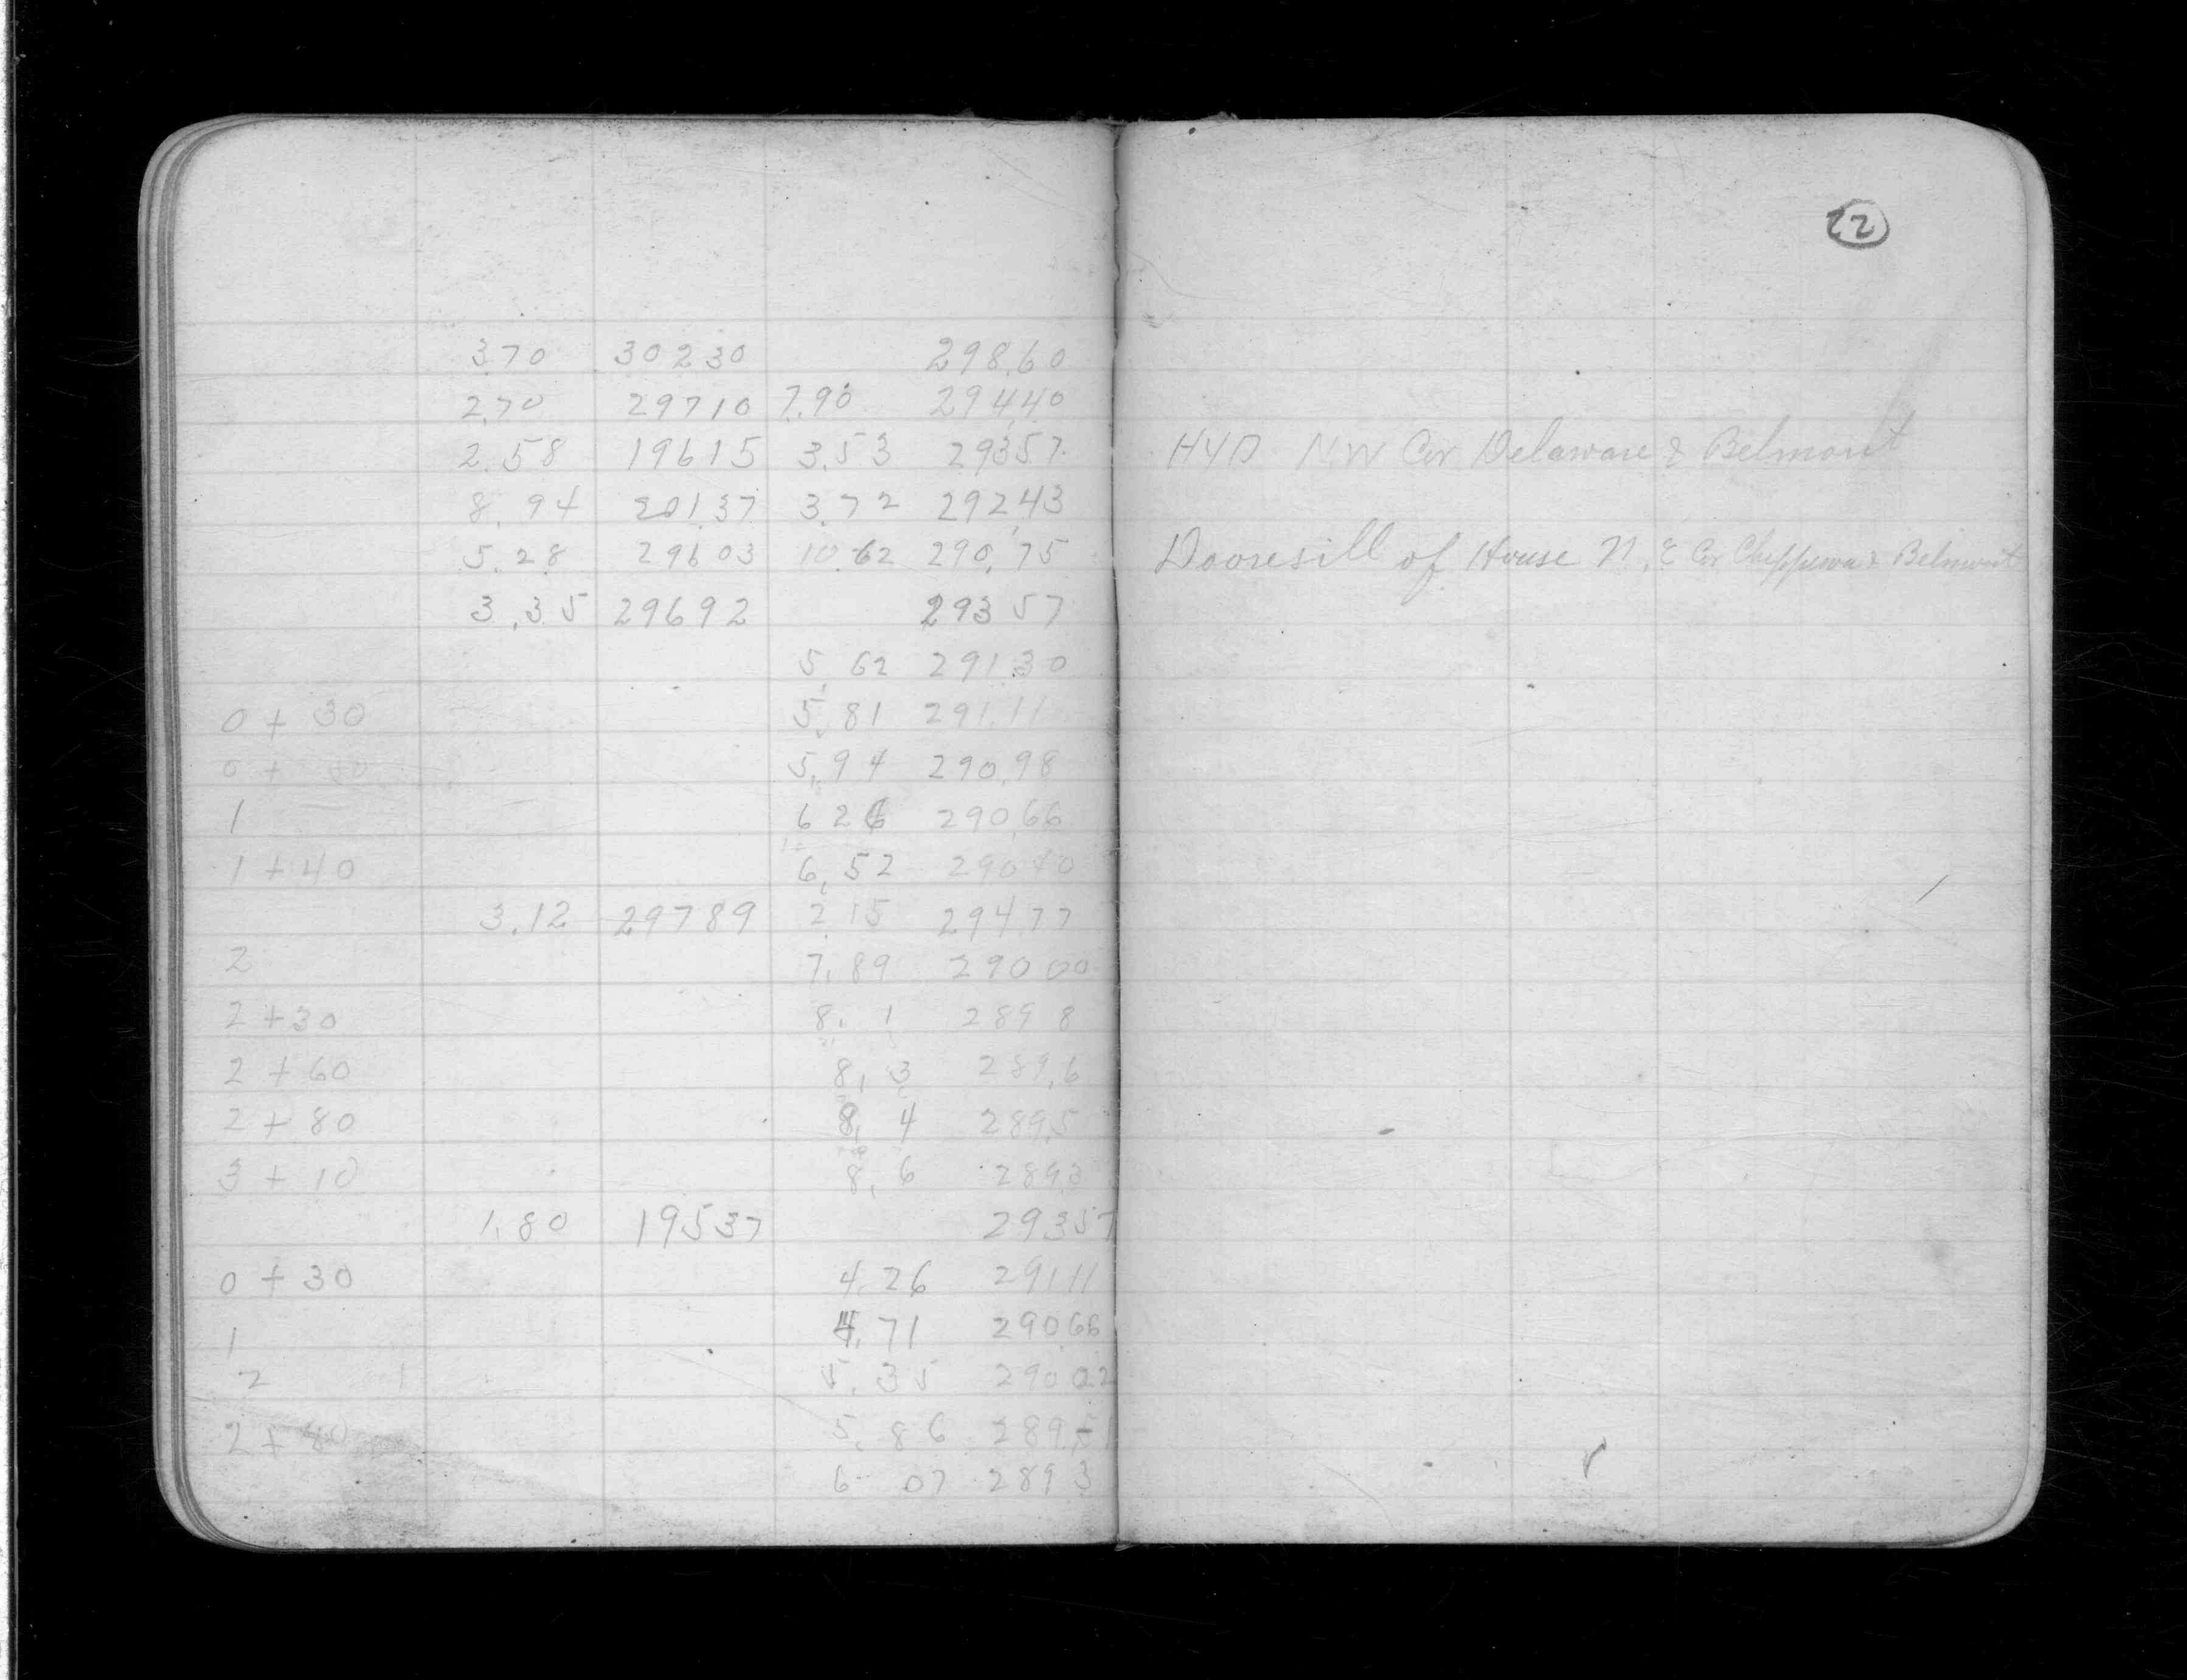 22
3.70 30230 298.60
2.70 29710 7.90 294.40
2.58 19615 3.53 29357
8.94 20137 3.72 292.43
5.28 29603 10.62 290.75
3.35 29692 293 57
5.62 291.30
0 + 30 5.81 291.11
0 + 5.94 290.98
1 6 26 290.66
1 + 40 6.52 29040
3.12 29789 2.15 29477
2 7.89 29000
2 + 30 8. 1 289 8
2 + 60 8. 3 289.6
2 + 80 8. 4 289.5
3 + 10 8. 6 2893
1.80 19537 29357
0 + 30 4.26 29111
1 4.71 29066
2 5.35 290 02
2 + 40 5.86 289.51
6 07 289 3
HYD NW Cor Delaware & Belmont
Dooresill of House N. E Cor Chippewa & Belmont